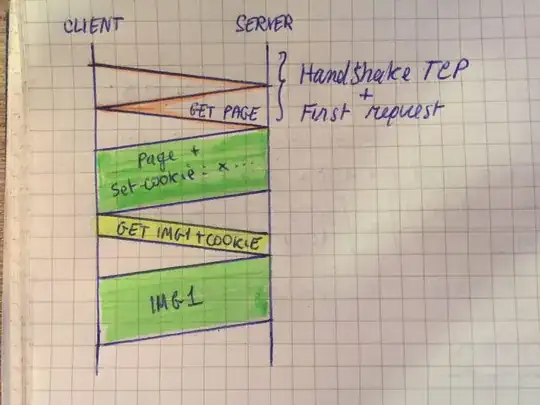 CLIENT
SERVER
HandShake TCP
+
First request
GET PAGE
Page +
Set-cookie: x ...
GET IMG1 + COOKIE
IMG1